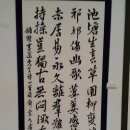 池塘生春草園柳變
祁祁傷豳歌萋萋感
索居易永久離群難
持操豈獨古無悶徵